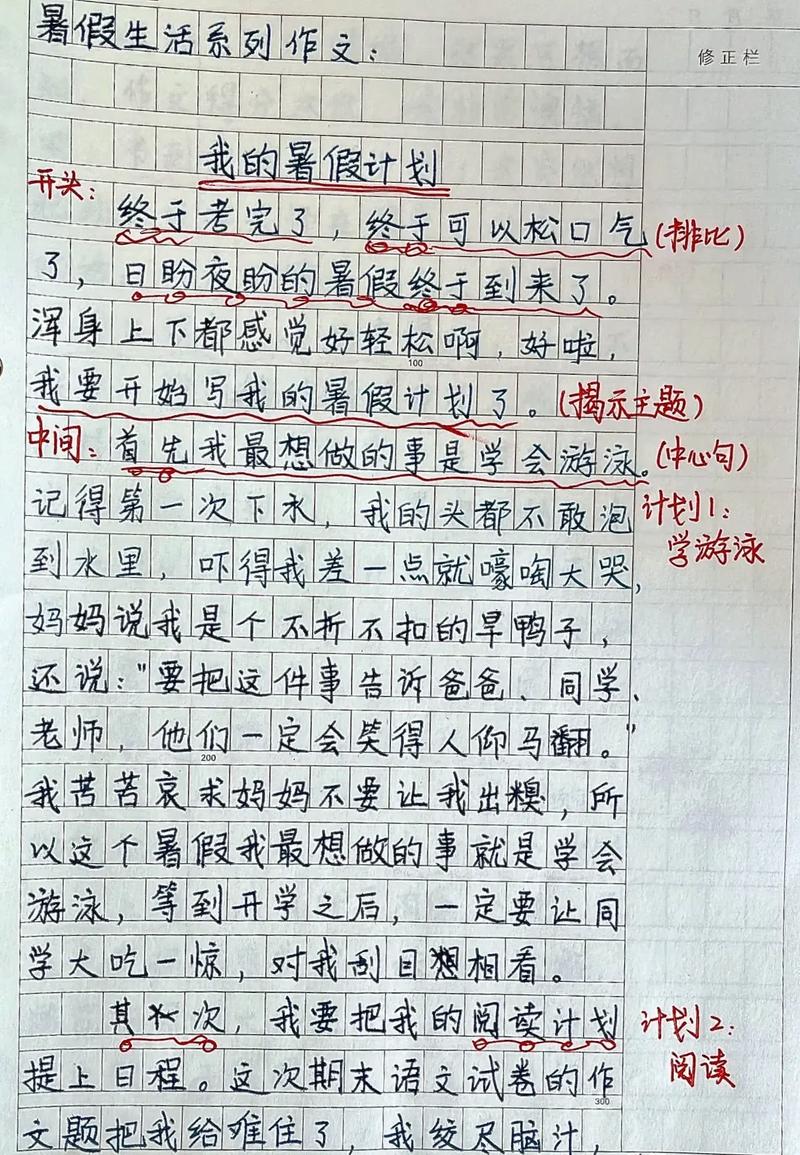 暑假生活系列作文：
修正栏
我的暑假计划
开头：
终于考完了，终于可以松口气(排比)
了，日盼夜盼的暑假终于到来了。
浑身上下都感觉好轻松啊，好啦，
100
我要开始写我的暑假计划了。(揭示主题)
中间：首先我最想做的事是学会游泳。(中心句)
记得第一次下水，我的头都不敢泡 计划1：
到水里，吓得我差一点就嚎啕大哭， 学游泳
妈妈说我是个不折不扣的旱鸭子，
还说："要把这件事告诉爸爸、同学、
老师，他们一定会笑得人仰马翻。"
200
我苦苦哀求妈妈不要让我出糗，所
以这个暑假我最想做的事就是学会
游泳，等到开学之后，一定要让同
学大吃一惊，对我刮目相看。
其次，我要把我的阅读计划 计划2：
提上日程。这次期末语文试卷的作 阅读
300
文题把我给难住了，我绞尽脑汁，